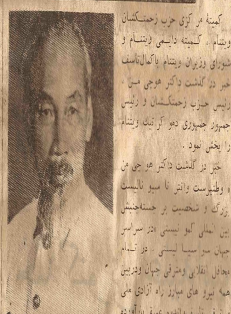 کمیتهٔ مرکزی حزب زحمتکشان
ویتنام ، کمیتهٔ دایمی ویتنام و
شورای وزیران ویتنام باکمال تاسف
خبر در گذشت داکتر هوچی من
رئیس حزب زحمتکشان و رئیس
جمهور جمهوری دمو کراتیک ویتنام
را پخش نمود .
خبر در گذشت داکتر هو چی من
بزرگ و شخصیت بر جستهٔجنبش
بین المللی کمو نیستی در سراسر
جهان در تمام
محافل انقلابی ومترقی جهان ودربین
همه نیرو های مبارز راه آزادی ملی